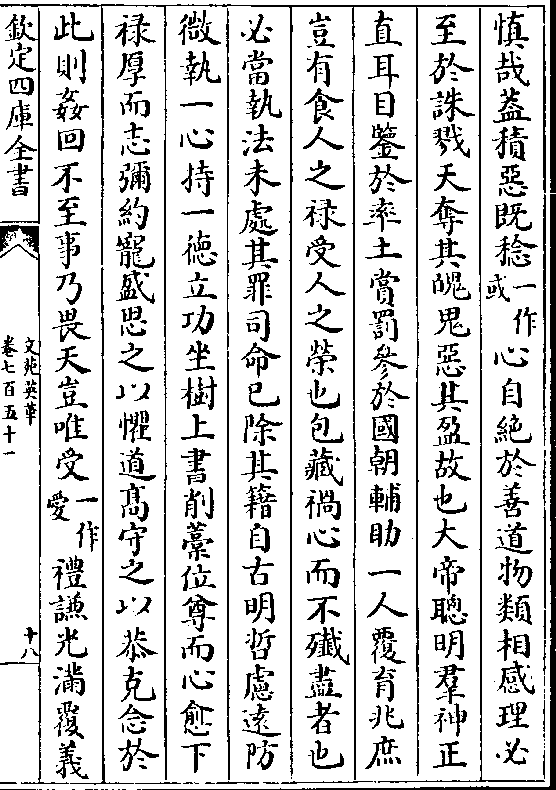 慎哉蓋積惡既稔一作或心自絶於善道物類相感理必
至於誅戮天奪其魄鬼惡其盈故也大帝聰明羣神正
直耳目鑒於率土賞罰參於國朝輔助一人覆育兆庶
豈有食人之禄受人之榮也包藏禍心而不殲盡者也
必當執法未處其罪司命已除其籍自古明哲慮遠防
微執一心持一德立功坐樹上書削藁位尊而心愈下
禄厚而志彌約寵盛思之以懼道髙守之以恭克念於
此則姦回不至事乃畏天豈唯受一作愛禮謙光滿覆義
欽定四庫全書
文苑英華
卷七百五十一
十八